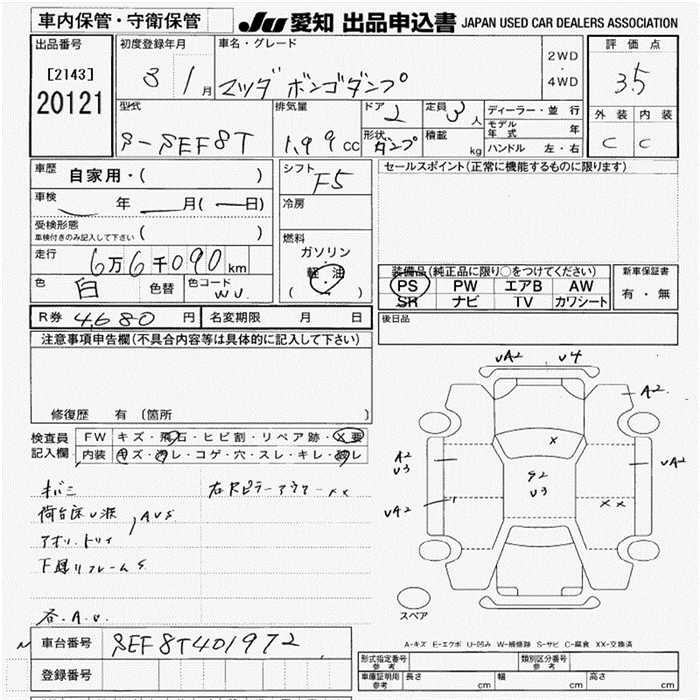 車内保管・守衛保管
JU 愛知 出品申込書 JAPAN USED CAR DEALERS ASSOCIATION
出品番号
[2143]
20121
初度登録年月
8 1月
車名・グレード
マツダ ボンゴダンプ
2WD
・
4WD
評価点
3.5
外装 内装
C C
型式
S-SEF8T
排気量
1.99cc
ドア
2
形状
ダンプ
定員
3人
積載
kg
ディーラー・並行
モデル年式 年
ハンドル 左・右
車歴
自家用・( )
車検
年 月( 日)
受検形態
車検付きのみ記入して下さい ( )
走行
6万6千090km
色
白
色替
色コード
WU.
シフト
F5
冷房
燃料
ガソリン
・
軽油
( )
セールスポイント(正常に機能するものに限ります)
装備品(純正品に限り○をつけてください)
PS PW エアB AW
SR ナビ TV カワシート
新車保証書
有・無
R券 4,680円
名変期限 月 日
後日品
注意事項申告欄(不具合内容等は具体的に記入して下さい)
修復歴 有 〔箇所 〕
検査員
記入欄
FW キズ・飛石・ヒビ割・リペア跡・X要
内装 キズ・汚レ・コゲ・穴・スレ・キレ・破レ
荷台床U浪
AUS
下廻リフレームS
右Rピラーアウターxx
各.A.U.
UA2 U4
A2
A2
U3
UA2
X
S2
U3
UA2
XX
スペア
A-キズ E-エクボ U-凹み W-補修跡 S-サビ C-腐食 XX-交換済
車台番号 SEF8T401972
登録番号
形式指定番号
参考
類別区分番号
参考
車庫証明用
参考
長さ cm 幅 cm 高さ cm